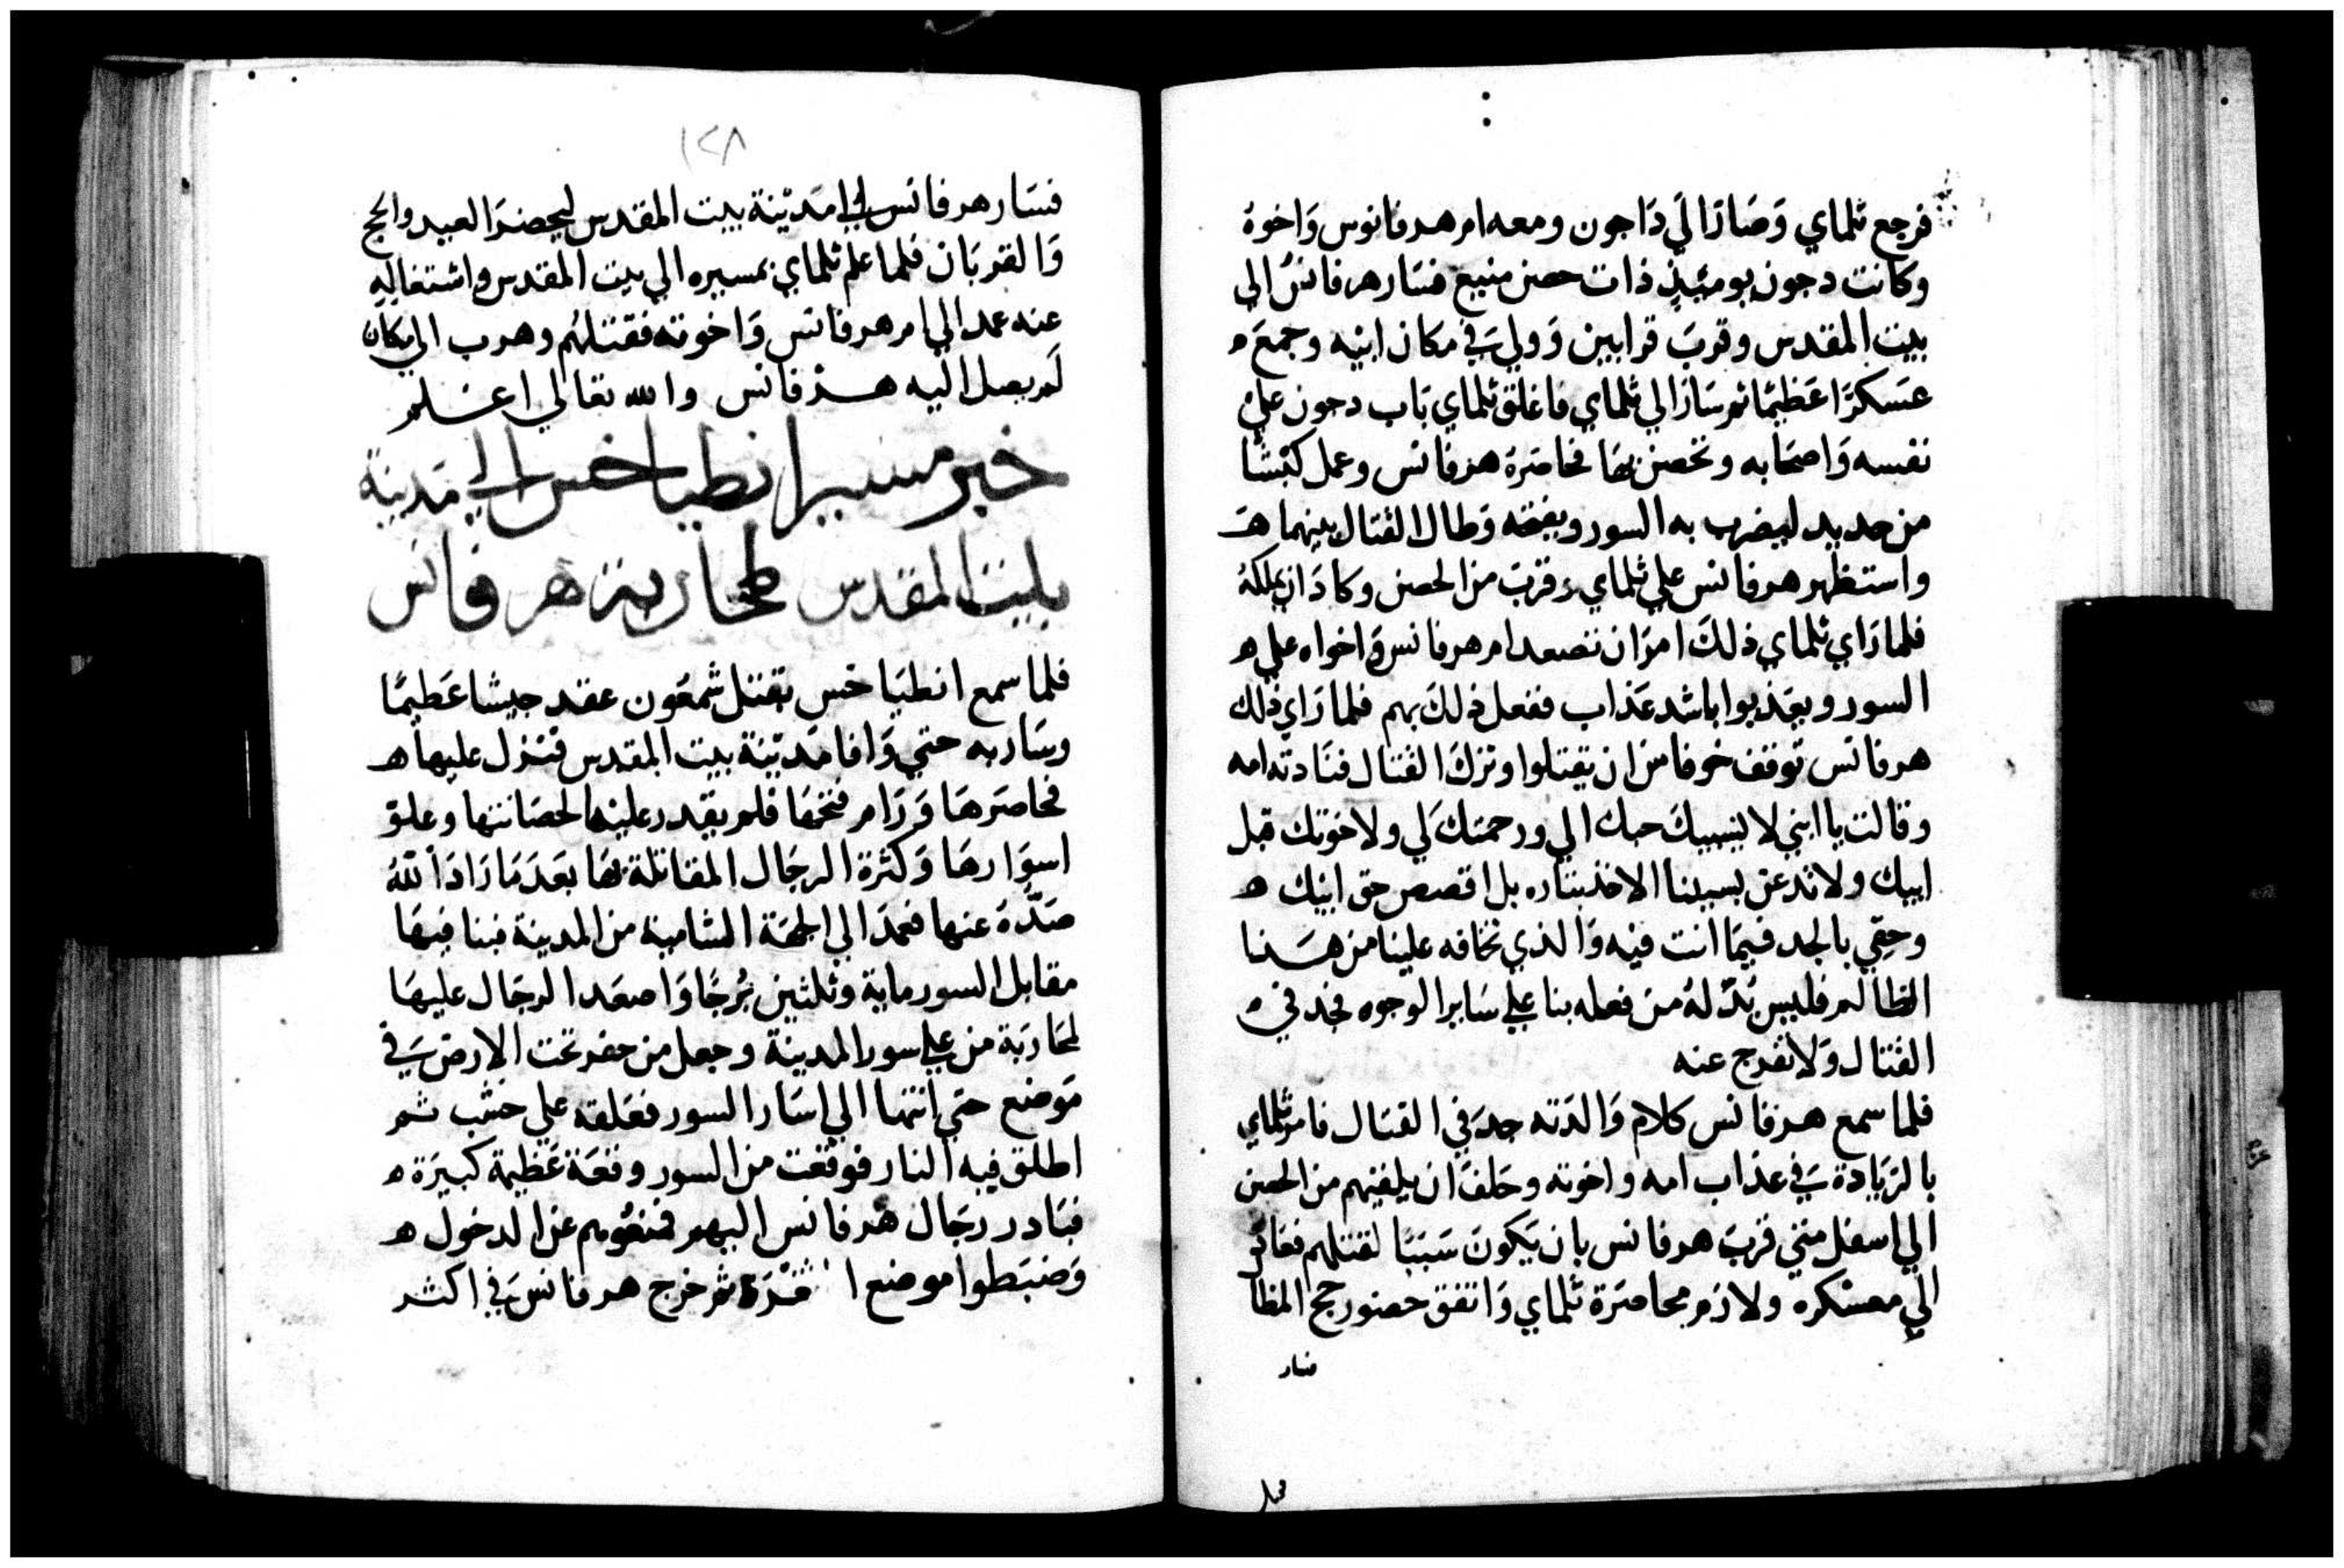 فرجع ثلماي وَصَارَ الَي دَاجون ومعه ام هرفانوس وَاخوة
وكانت دجون يوميئذٍ ذات حصن منيع فسَار هرفانسُ الي
بيت المقدس وقربَ قرابين وَوليَ فيَ مكان ابيْه وجمعَ ه
عسَكرًا عَظيمًا ثم سَارَ الي ثلماي فاغلق ثلماي بَاب دجون عليْ
نفسه وَاصحَابه وتحصن بهَا فحاصَرهُ هرفانس وعمل كبْشًا
من حديد ليضرب به السور ويفتحه وَطال القتال بينهما هـ
واستظهر هرفانس علي ثلماي وقربَ من الحصن وكادَ ان يملكهُ
فلما رَاي ثلماي ذلكَ امرَ ان تصعد ام هرفانس وَاخواه علي ه
السور ويعَذبوا باشد عَذاب ففعل ذلكَ بهم فلما رَاي ذلك
هرفانس توقف خوفا من ان يقتلوا وترَكَ القتال فنَادته امه
وقالت يا ابني لا ينسيكَ حبك الي ورحمتكَ لي ولاخوتك قبل
ابيك ولا تدعن بسببنا الاخذ بثاره بل اقصص حق ابيك ه
وحقي بالجد فيمَا انت فيْه وَالذي تخافه علينا من هَذا
الظالم فليس بُدّ لهُ من فعله بنا علي سَاير الوجوه فجد في ه
القتال وَلا تفرج عنه
فلما سمع هرفانس كلام وَالدَته جدَ في القتال فامر ثلماي
بالزيَادة فيَ عذاب امه واخوته وحَلفَ ان يلقيهم من الحصن
الي اسفل متي قربَ هرفانس بان يَكونَ سَببَا لقتلهم فعَاد
الي معسْكره ولازم محاصَرة ثلماي وَاتفق حضور حج المظال
فسار
١٢٨
فسَار هرفانس الي مَديْنة بيت المقدس ليحضرَ العيد والحج
وَالقربَان فلما علم ثلماي بمسيره الي بيت المقدس واشتغاله
عنه عمد الي ام هرفانس وَاخوته فقتلهُم وهرب الي مكان
لَم يصل اليه هرفانس والله تعالي اعلم
خبر مسير انطياخس الي مَدينة
بيت المقدس لمحاربة هرفانس
فلما سمع انطيَاخس بقتل شمعَون عقد جيشا عَظيمًا
وسَار به حتي وَافا مَديْنة بيت المقدس فنزل عليها هـ
فحاصَرهَا وَرَام فتحَهَا فلم يقدر عليْها لحصَانتها وعلوّ
اسوَارهَا وَكثرة الرجَال المقاتلة بهَا بعَد مَا رَادَ اللهُ
صَدّهُ عنها فعمدَ الي الجهَة الشامية من المدينة فبنا فيهَا
مقابل السور ماية وثلثين بُرجًا وَاصعَد الرجَال عليهَا
لمحَارَبَة من علي سور المدينة وجعل من حفر تحت الارض فيَ
مَوضع حتي انتها الي اسَار السور فعَلقه علي خشب ثم
اطلق فيه النار فوقعت من السور وقعَة عَظيمة كبيرَة ه
فبَادر رجَال هرفانس اليهم فمنعُوهم عن الدخول هـ
وَضبَطوا موضع ا ثم خرج هرفانس فيَ اكثر